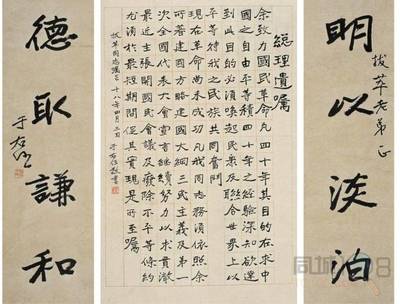 拔萃老弟正
明以淡泊
總理遺囑
余致力國民革命凡四十年其目的在求中
國之自由平等積四十年之經驗深知欲達
到此目的必須喚起民衆及聯合世界上以
平等待我之民族共同奮鬥
現在革命尚未成功凡我同志務須依照余
所著建國方略建國大綱三民主義及第一
次全國代表大會宣言繼續努力以求貫徹
最近主張開國民會議及廢除不平等條約
尤須於最短期間促其實現是所至囑
拔萃同志屬 十八年四月三日 于右任敬書
德取謙和
于右任
同城